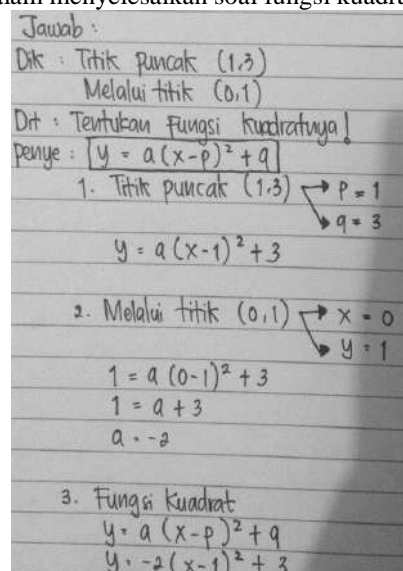 dalam menyelesaikan soal fungsi kuadra
Jawab :
Dik : Titik puncak (1,3)
Melalui titik (0,1)
Dit : Tentukan Fungsi kuadratnya!
Penye : y = a(x-p)² + q
1. Titik puncak (1,3) → p = 1
→ q = 3
y = a (x-1)² + 3
2. Melalui titik (0,1) → x = 0
→ y = 1
1 = a (0-1)² + 3
1 = a + 3
a = -2
3. Fungsi Kuadrat
y = a (x-p)² + q
y = -2 (x-1)² + 3